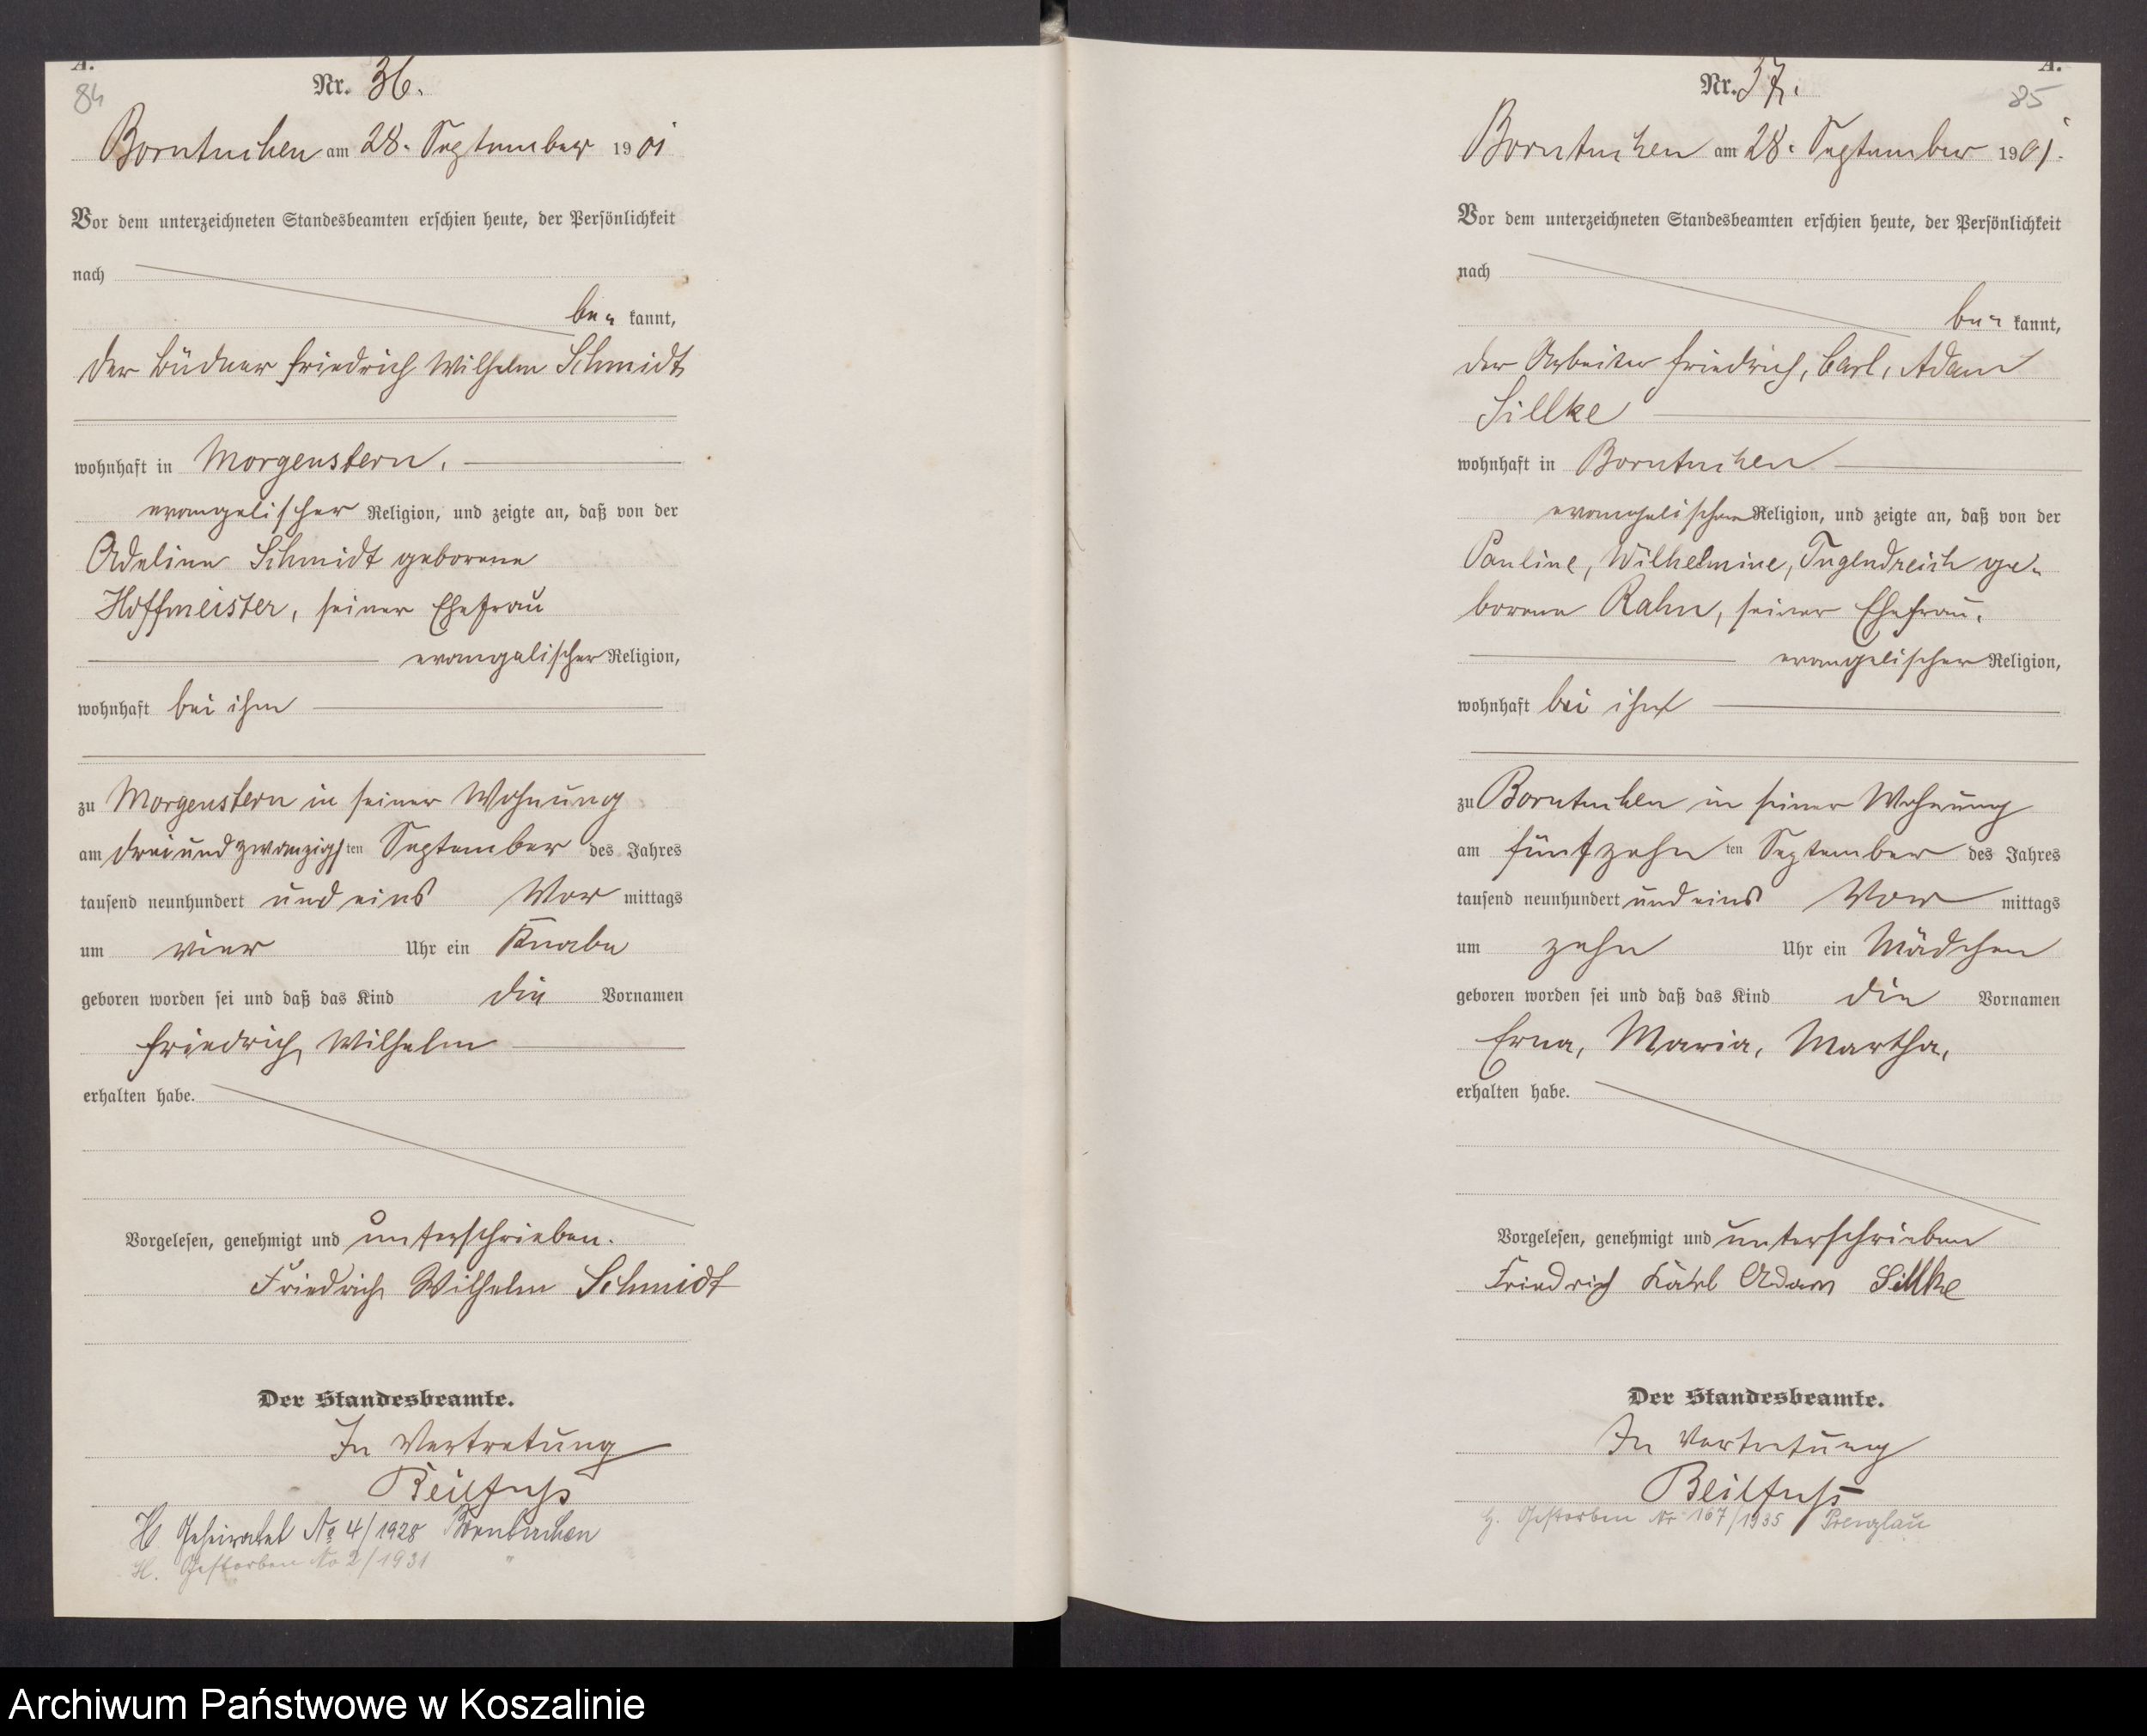 A.
84
Nr. 36.
Borntuchen am 28. September 1901
Vor dem unterzeichneten Standesbeamten erschien heute, der Persönlichkeit
nach
be- kannt,
der Büdner Friedrich Wilhelm Schmidt
wohnhaft in Morgenstern.
evangelischer Religion, und zeigte an, daß von der
Adeline Schmidt geborene
Hoffmeister, seiner Ehefrau
evangelischer Religion,
wohnhaft bei ihm
zu Morgenstern in seiner Wohnung
am dreiundzwanzigsten September des Jahres
tausend neunhundert und eins Vor mittags
um vier Uhr ein Knabe
geboren worden sei und daß das Kind die Vornamen
Friedrich Wilhelm
erhalten habe.
Vorgelesen, genehmigt und unterschrieben.
Friedrich Wilhelm Schmidt
Der Standesbeamte.
In Vertretung
Beilfuß
H Geheiratet No 4/1928 Borntuchen
H. Gestorben No 2/1931 "
A.
85
Nr. 37.
Borntuchen am 28. September 1901.
Vor dem unterzeichneten Standesbeamten erschien heute, der Persönlichkeit
nach
be- kannt,
der Arbeiter Friedrich, Carl, Adam
Sillke
wohnhaft in Borntuchen
evangelischer Religion, und zeigte an, daß von der
Pauline, Wilhelmine, Tugendreich ge-
borene Rahn, seiner Ehefrau,
evangelischer Religion,
wohnhaft bei ihm
zu Borntuchen in seiner Wohnung
am fünfzehn ten September des Jahres
tausend neunhundert und eins Vor mittags
um zehn Uhr ein Mädchen
geboren worden sei und daß das Kind die Vornamen
Erna, Maria, Martha,
erhalten habe.
Vorgelesen, genehmigt und unterschrieben
Friedrich Karl Adam Sillke
Der Standesbeamte.
In Vertretung
Beilfuß
H. Gestorben Nr 167/1935 Prenzlau
Archiwum Państwowe w Koszalinie